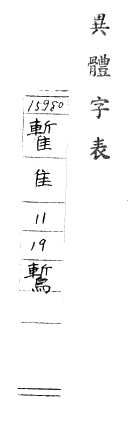 異體字表
15980
隹
11
19